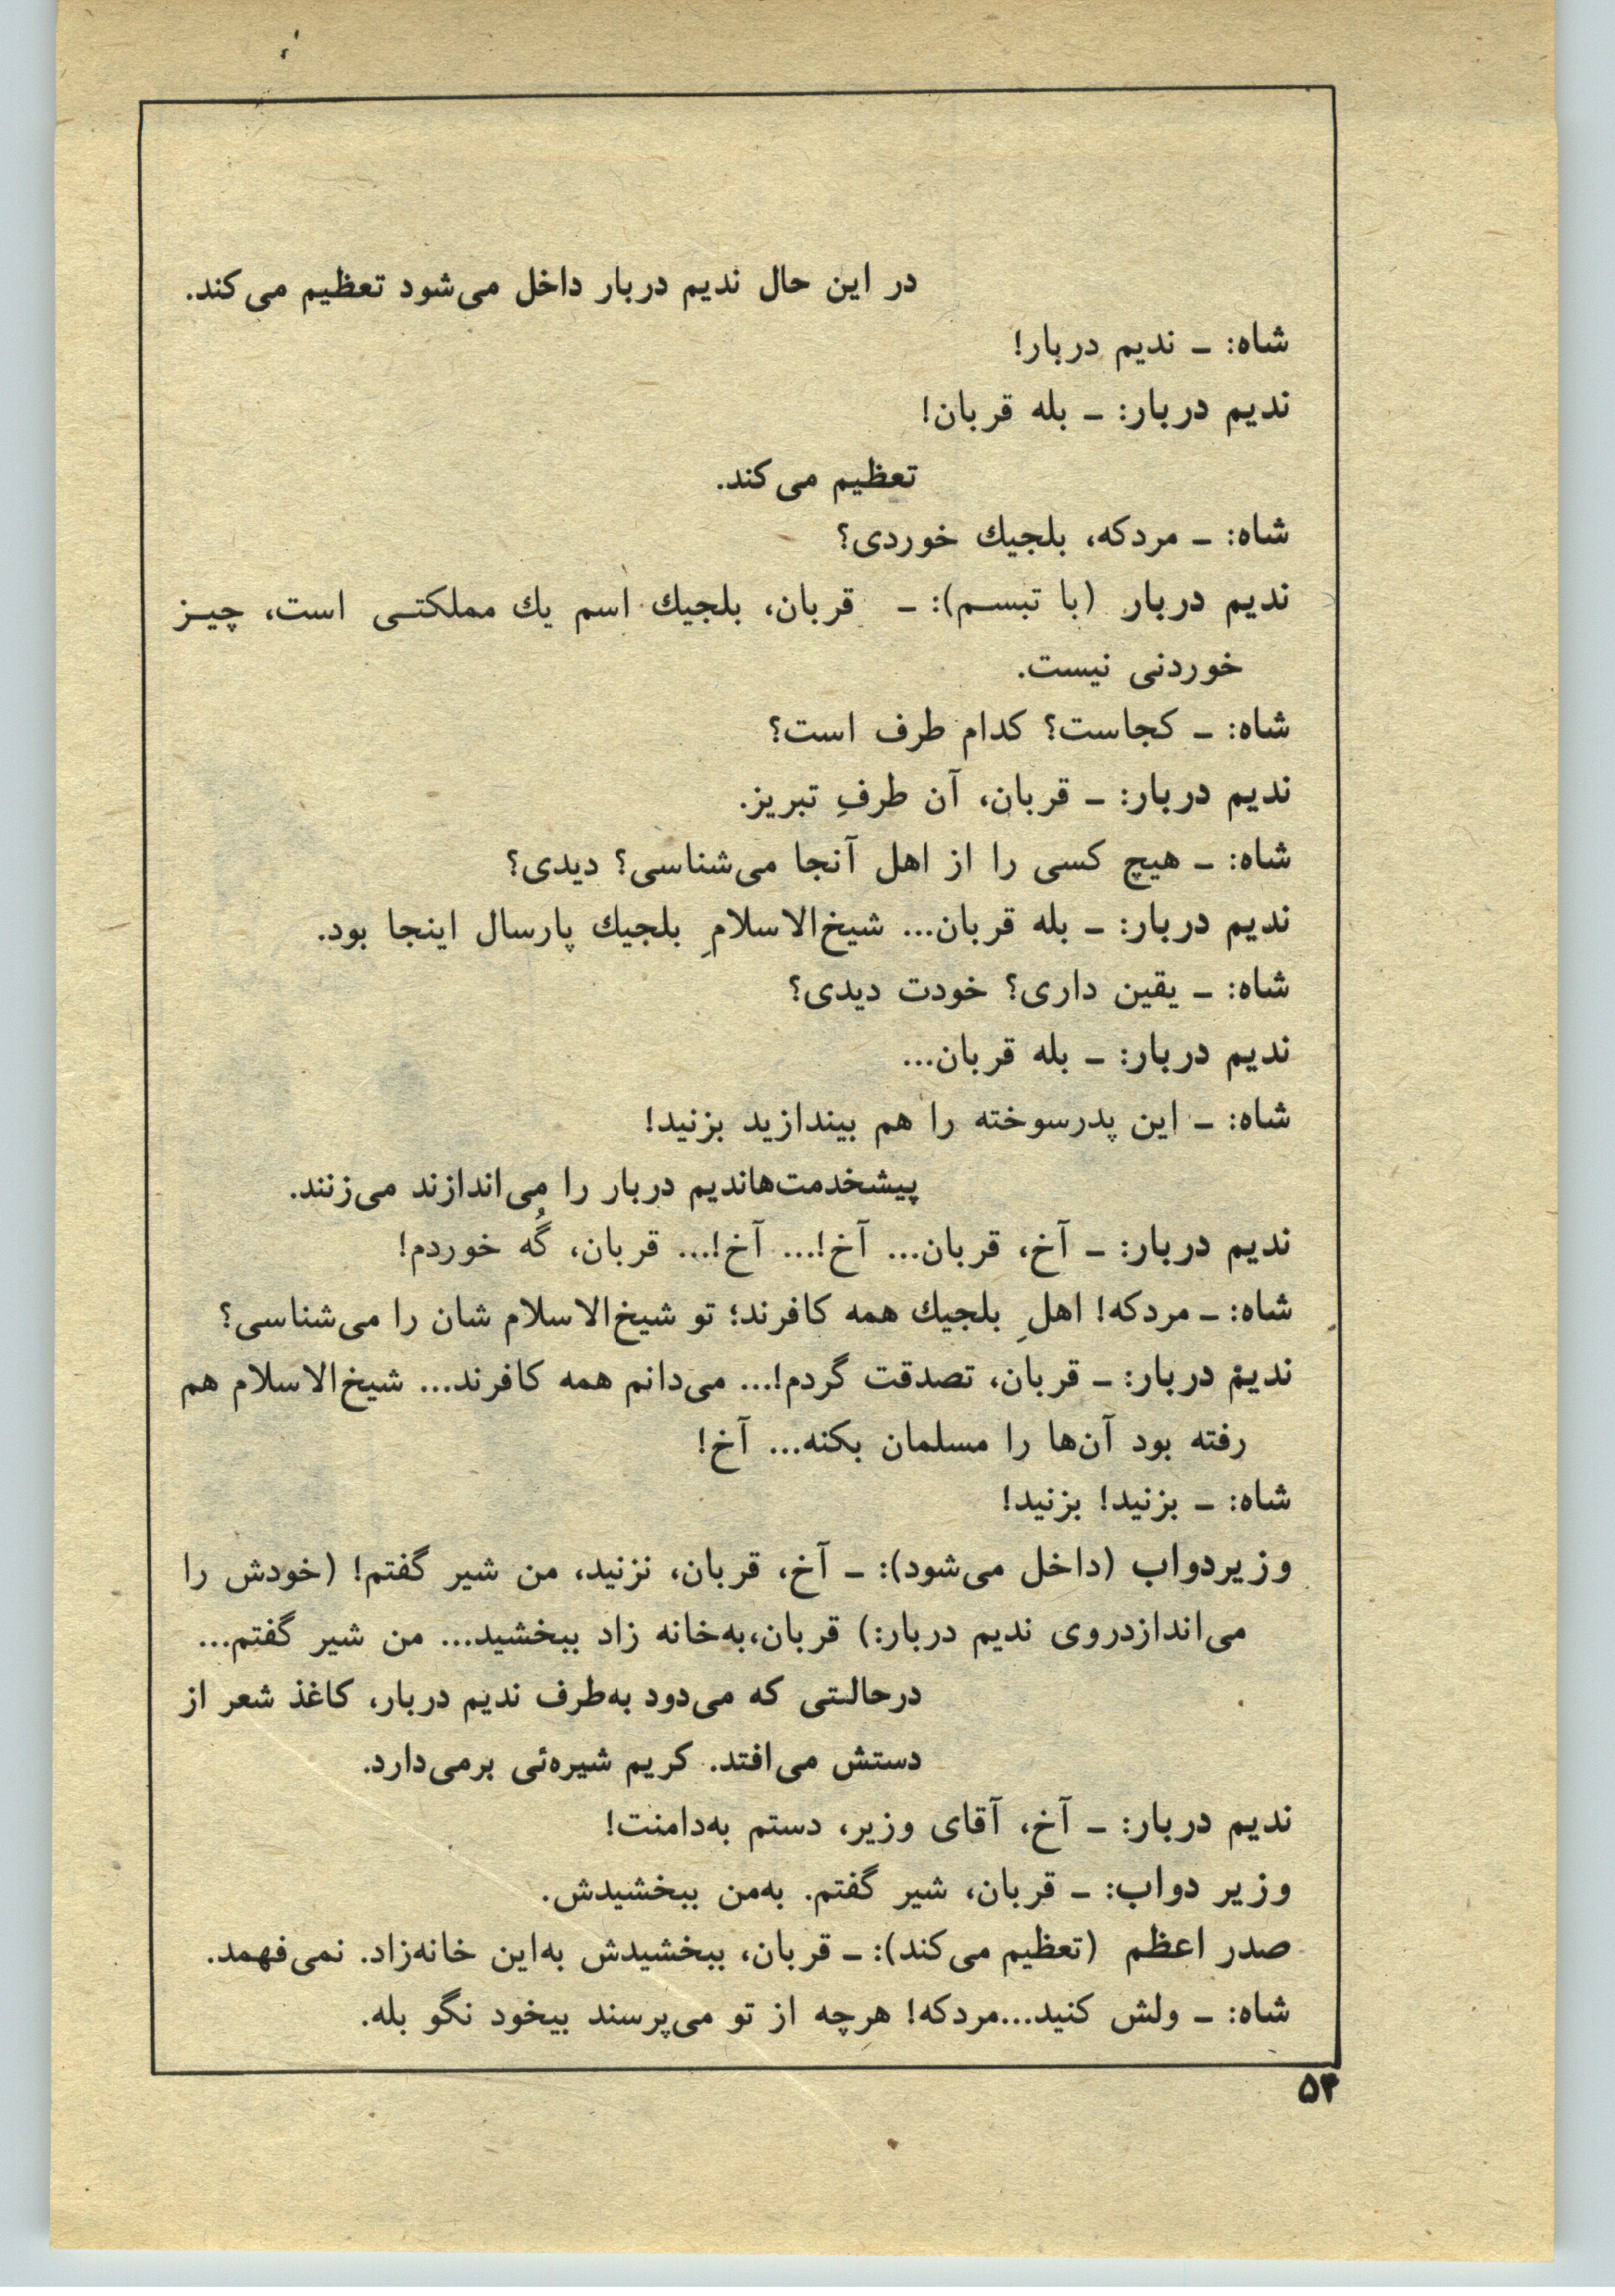 در این حال ندیم دربار داخل می‌شود تعظیم می‌کند.
شاه: ـ ندیم دربار!
ندیم دربار: ـ بله قربان!
تعظیم می‌کند.
شاه: ـ مردکه، بلجیك خوردی؟
ندیم دربار (با تبسـم): ـ قربان، بلجیك اسم یك مملکتـی است، چیـز
خوردنی نیست.
شاه: ـ کجاست؟ کدام طرف است؟
ندیم دربار: ـ قربان، آن طرفِ تبریز.
شاه: ـ هیچ کسی را از اهل آنجا می‌شناسی؟ دیدی؟
ندیم دربار: ـ بله قربان... شیخ‌الاسلامِ بلجیك پارسال اینجا بود.
شاه: ـ یقین داری؟ خودت دیدی؟
ندیم دربار: ـ بله قربان...
شاه: ـ این پدرسوخته را هم بیندازید بزنید!
پیشخدمت‌هاندیم دربار را می‌اندازند می‌زنند.
ندیم دربار: ـ آخ، قربان... آخ!... آخ!... قربان، گُه خوردم!
شاه: ـ مردکه! اهلِ بلجیك همه کافرند؛ تو شیخ‌الاسلام شان را می‌شناسی؟
ندیم دربار: ـ قربان، تصدقت گردم!... می‌دانم همه کافرند... شیخ‌الاسلام هم
رفته بود آن‌ها را مسلمان بکنه... آخ!
شاه: ـ بزنید! بزنید!
وزیردواب (داخل می‌شود): ـ آخ، قربان، نزنید، من شیر گفتم! (خودش را
می‌اندازدروی ندیم دربار:) قربان،به‌خانه زاد ببخشید... من شیر گفتم...
درحالتی که می‌دود به‌طرف ندیم دربار، کاغذ شعر از
دستش می‌افتد. کریم شیره‌ئی برمی‌دارد.
ندیم دربار: ـ آخ، آقای وزیر، دستم به‌دامنت!
وزیر دواب: ـ قربان، شیر گفتم. به‌من ببخشیدش.
صدر اعظم (تعظیم می‌کند): ـ قربان، ببخشیدش به‌این خانه‌زاد. نمی‌فهمد.
شاه: ـ ولش کنید...مردکه! هرچه از تو می‌پرسند بیخود نگو بله.
۵۴